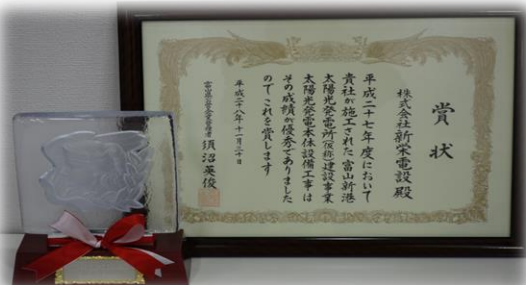 賞状
株式会社新栄電設殿
平成二十七年度において
貴社が施工された富山新港
太陽光発電所(仮称)建設事業
太陽光発電本体設備工事は
その成績が優秀でありました
のでこれを賞します
平成二十八年十一月二十日
須沼英俊